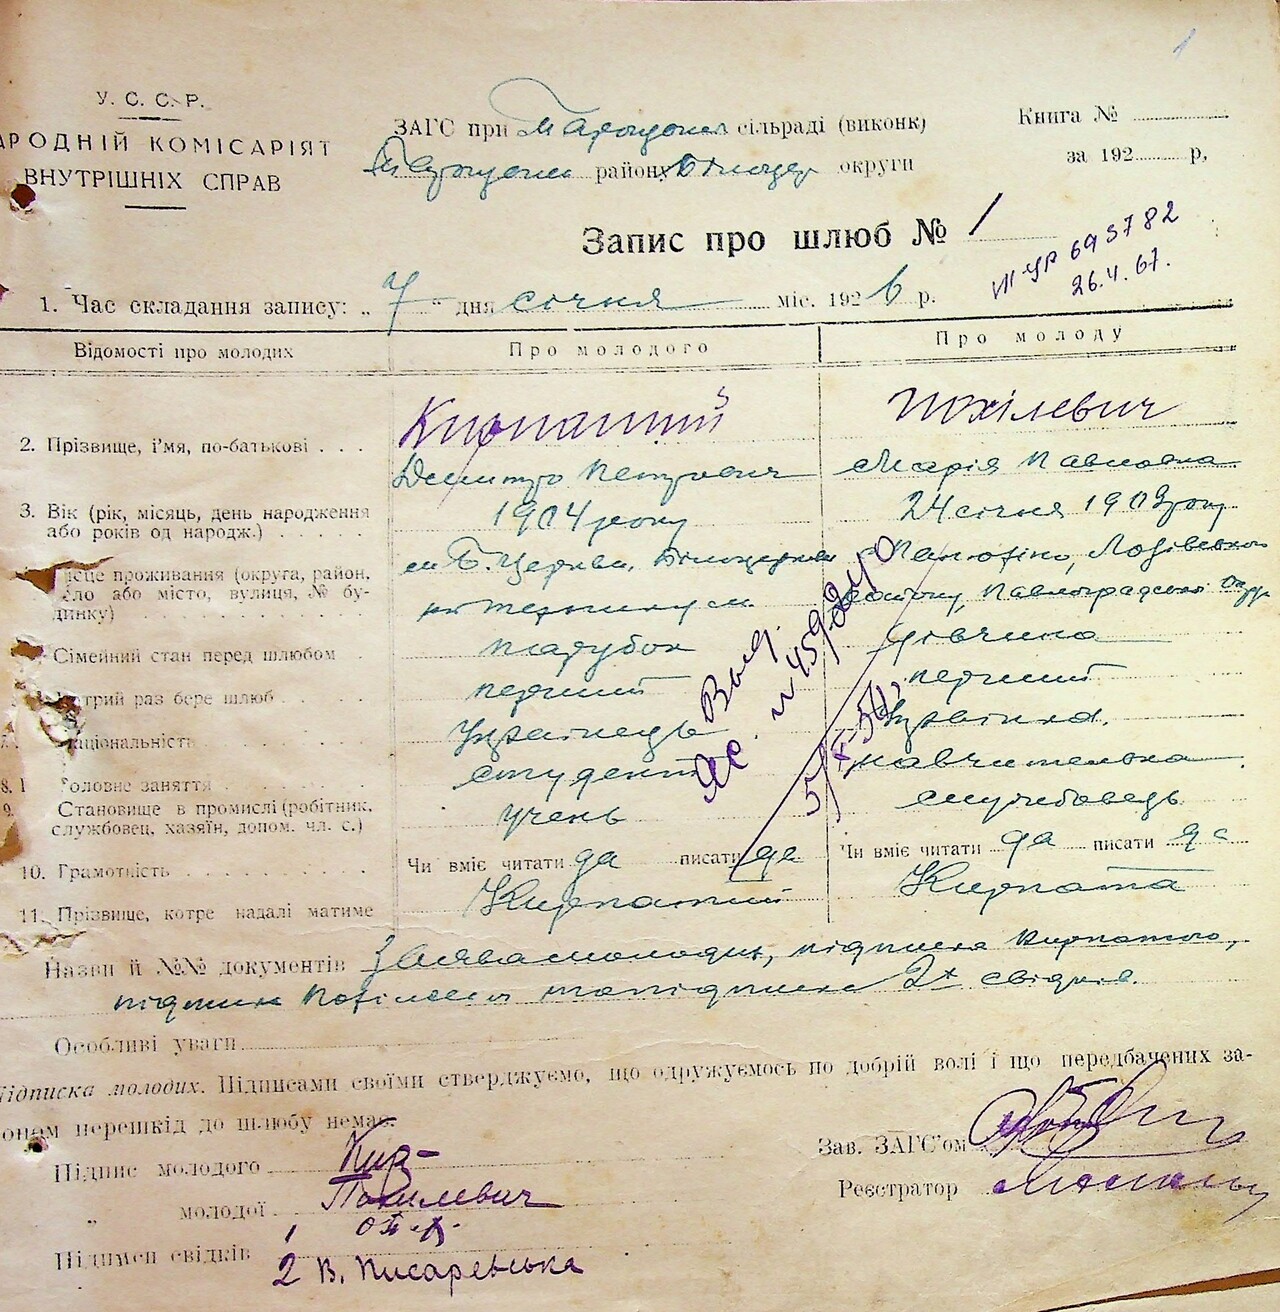 1
У. С. С. Р.
АРОДНІЙ КОМІСАРІЯТ
ВНУТРІШНІХ СПРАВ
ЗАГС при сільраді (виконк)
району округи
Книга №
за 192 р,
Запис про шлюб № 1
УР 693782
26.4.67.
1. Час складання запису: „ 7 “ дня січня міс. 1926 р.
Відомості про молодих
Про молодого
Про молоду
2. Прізвище, і'мя, по-батькові
Похілевич
Дмитро Петрович
Марія Павловна
3. Вік (рік, місяць, день народження
або років од народж.)
1904 року
24 січня 1903 року
ісце проживання (округа, район,
ело або місто, вулиця, № бу-
динку)
м Б. Церкви,
Павлоградської Округ
Сімейний стан перед шлюбом
парубок
дівчина
отрий раз бере шлюб
перший
перший
національність
Українець
Українка.
8. Головне заняття
студент
навчителька
9. Становище в промислі (робітник,
службовец, хазяїн, допом. чл. с.)
учень
службовець
10. Грамотність
Чи вміє читати да писати да
Чи вміє читати да писати да
11. Прізвище, котре надалі матиме
Кирпатий
Кирпата
Выд.
5/X-50
Назви й №№ документів Заява молодих, підписка Кирпатого,
підписка Похілевич та підписка 2х свідків.
Особливі уваги
Підписка молодих. Підписами своїми стверджуємо, що одружуємось по добрій волі і що передбачених за-
оном перешкід до шлюбу немає.
Зав. ЗАГС'ом
Підпис молодого Кир-
Реєстратор
„ молодої Похилевич
Підписи свідків
1
2 В. Писаревська